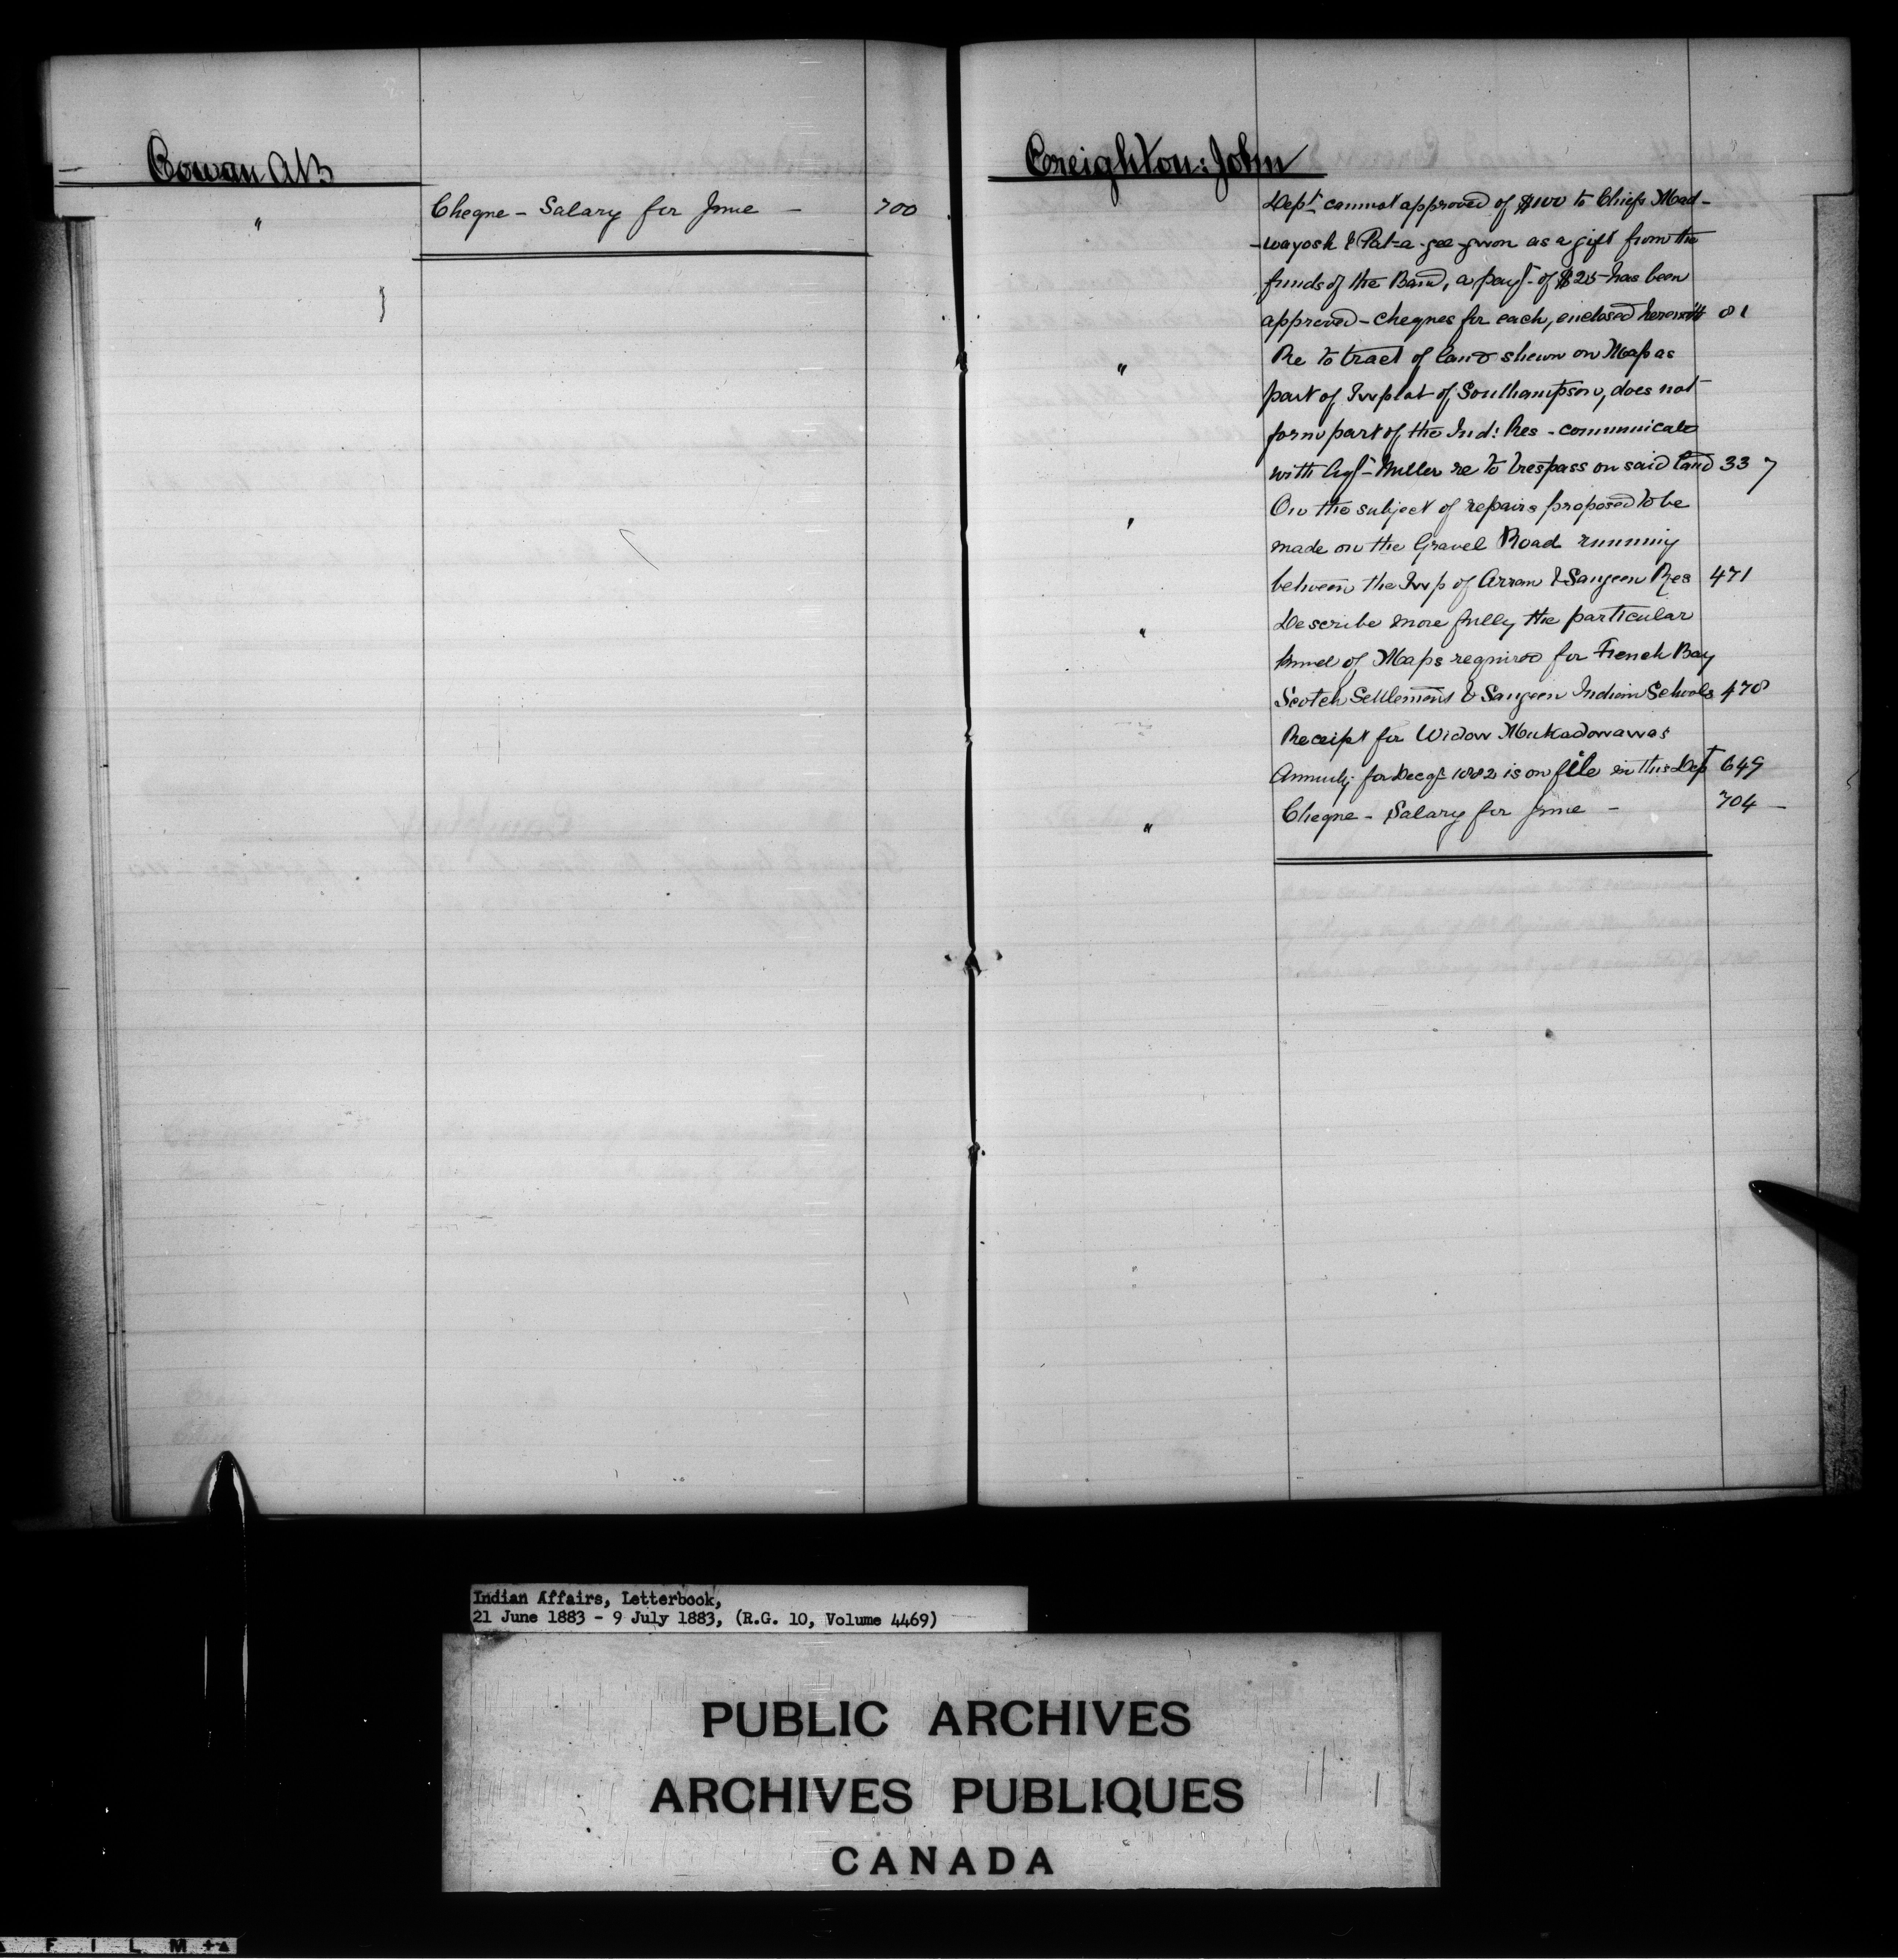 Cowan AB
" Cheque - Salary for June - 700
Creighton: John
Dept. cannot approved of $100 to Chiefs Mad-
-wayosh & Pat-a-gee-gwon as a gift from the
funds of the Band, a payt. of $25 has been
approved - cheques for each, enclosed herewith 81
" Re to tract of land shewn on Map as
part of Twplot of Southampton, does not
form part of the Ind: Res - communicate
with Agt. Miller re to trespass on said land 337
" On the subject of repairs proposed to be
made on the Gravel Road running
between the Twp of Arran & Saugeen Res 471
" Describe more fully the particular
kind of Maps required for French Bay
Scotch Settlement & Saugeen Indian Schools 478
Receipt for Widow Mukadowawas
Annuity for Decqr 1882 is on file in this Dept 649
" Cheque - Salary for June - 704 -
Indian Affairs, Letterbook,
21 June 1883 - 9 July 1883, (R.G. 10, Volume 4469)
PUBLIC ARCHIVES
ARCHIVES PUBLIQUES
CANADA
F I L M